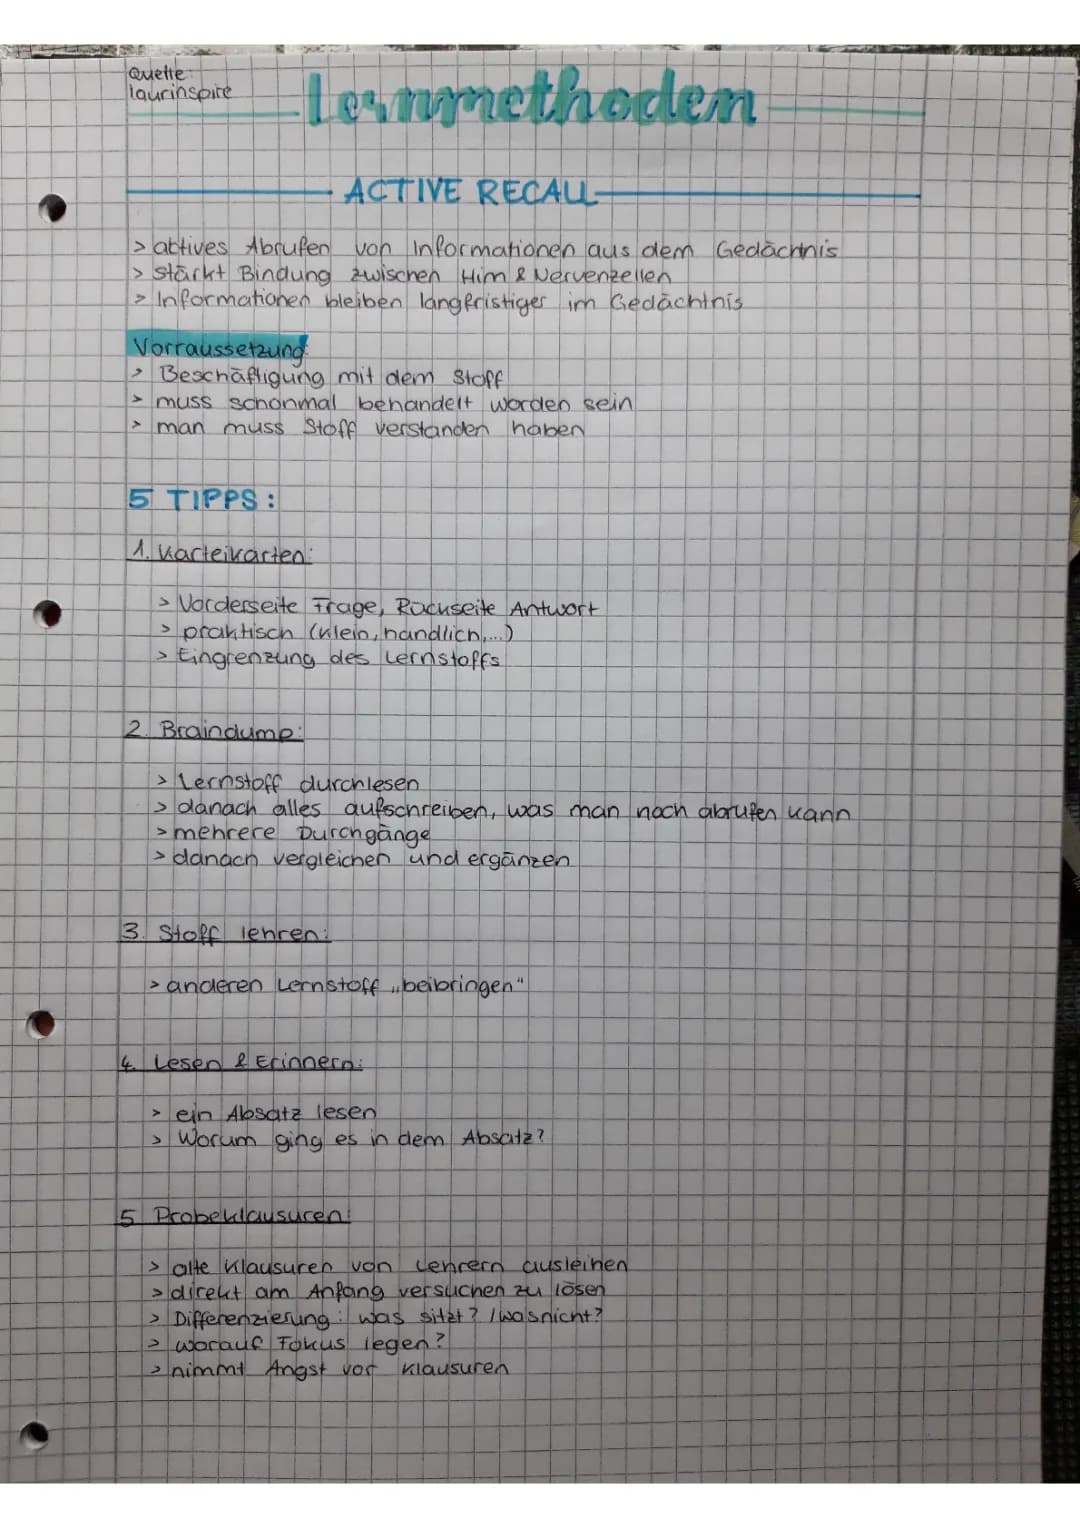 Quelle:
laurinspire
Lernmethoden
ACTIVE RECALL
> aktives Abrufen von Informationen aus dem Gedächtnis
> stärkt Bindung zwischen Hirn & Nervenzellen
> Informationen bleiben langfristiger im Gedächtnis
Vorraussetzung:
> Beschäftigung mit dem Stoff
> muss schonmal behandelt worden sein
> man muss Stoff verstanden haben
5 TIPPS:
1. Karteikarten:
> Vorderseite Frage, Rückseite Antwort
> praktisch (klein, handlich,...)
> Eingrenzung des Lernstoffs
2. Braindump:
> Lernstoff durchlesen
> danach alles aufschreiben, was man noch abrufen kann
> mehrere Durchgänge
> danach vergleichen und ergänzen
3. Stoff lehren:
> anderen Lernstoff „beibringen"
4. Lesen & Erinnern:
> ein Absatz lesen
> Worum ging es in dem Absatz?
5 Probeklausuren:
> alte Klausuren von Lehrern ausleihen
> direkt am Anfang versuchen zu lösen
> Differenzierung: was sitzt? / was nicht?
> worauf Fokus legen?
> nimmt Angst vor Klausuren